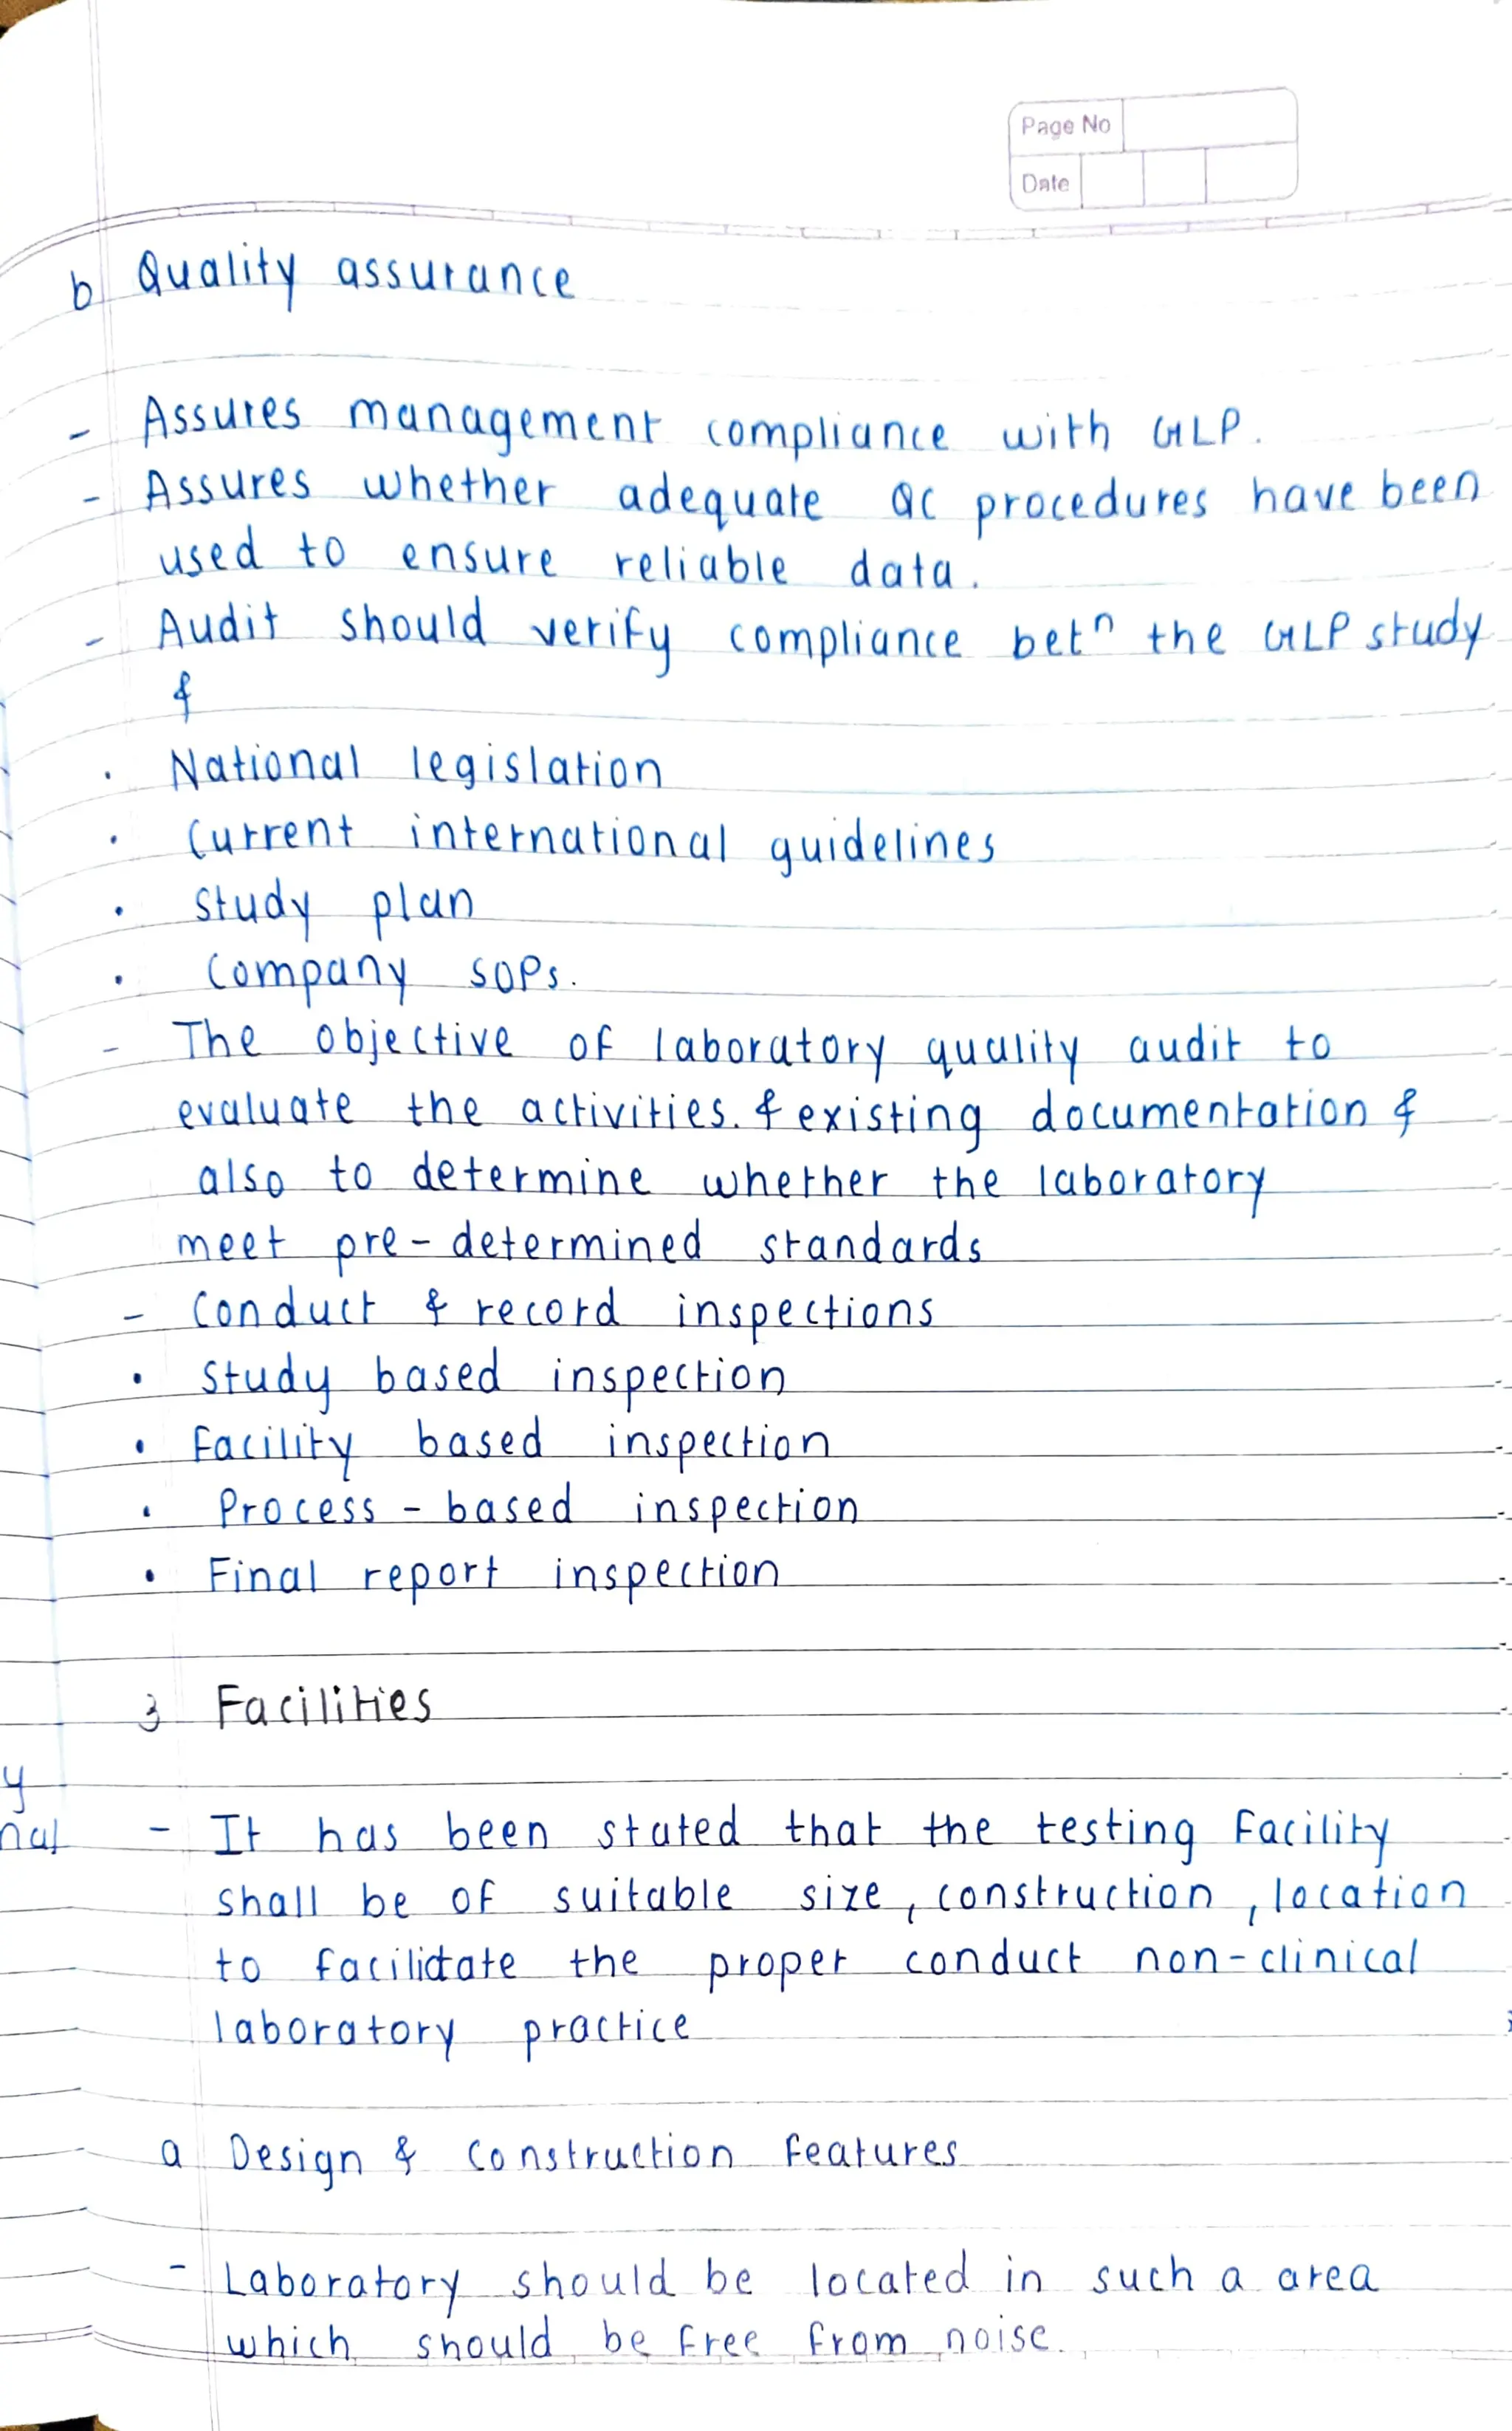 Page No
Date
b Quality assurance
- Assures management compliance with GLP.
- Assures whether adequate QC procedures have been
used to ensure reliable data.
- Audit should verify compliance betⁿ the GLP study
&
• National legislation
• Current international guidelines
• Study plan
• Company SOPs.
- The objective of laboratory quality audit to
evaluate the activities. & existing documentation &
also to determine whether the laboratory
meet pre-determined standards
- Conduct & record inspections
• Study based inspection
• Facility based inspection
• Process - based inspection
• Final report inspection
3 Facilities
y
nal
- It has been stated that the testing Facility
shall be of suitable size, construction, location
to facilitate the proper conduct non-clinical
laboratory practice
a Design & Construction Features
- Laboratory should be located in such a area
which should be free from noise.